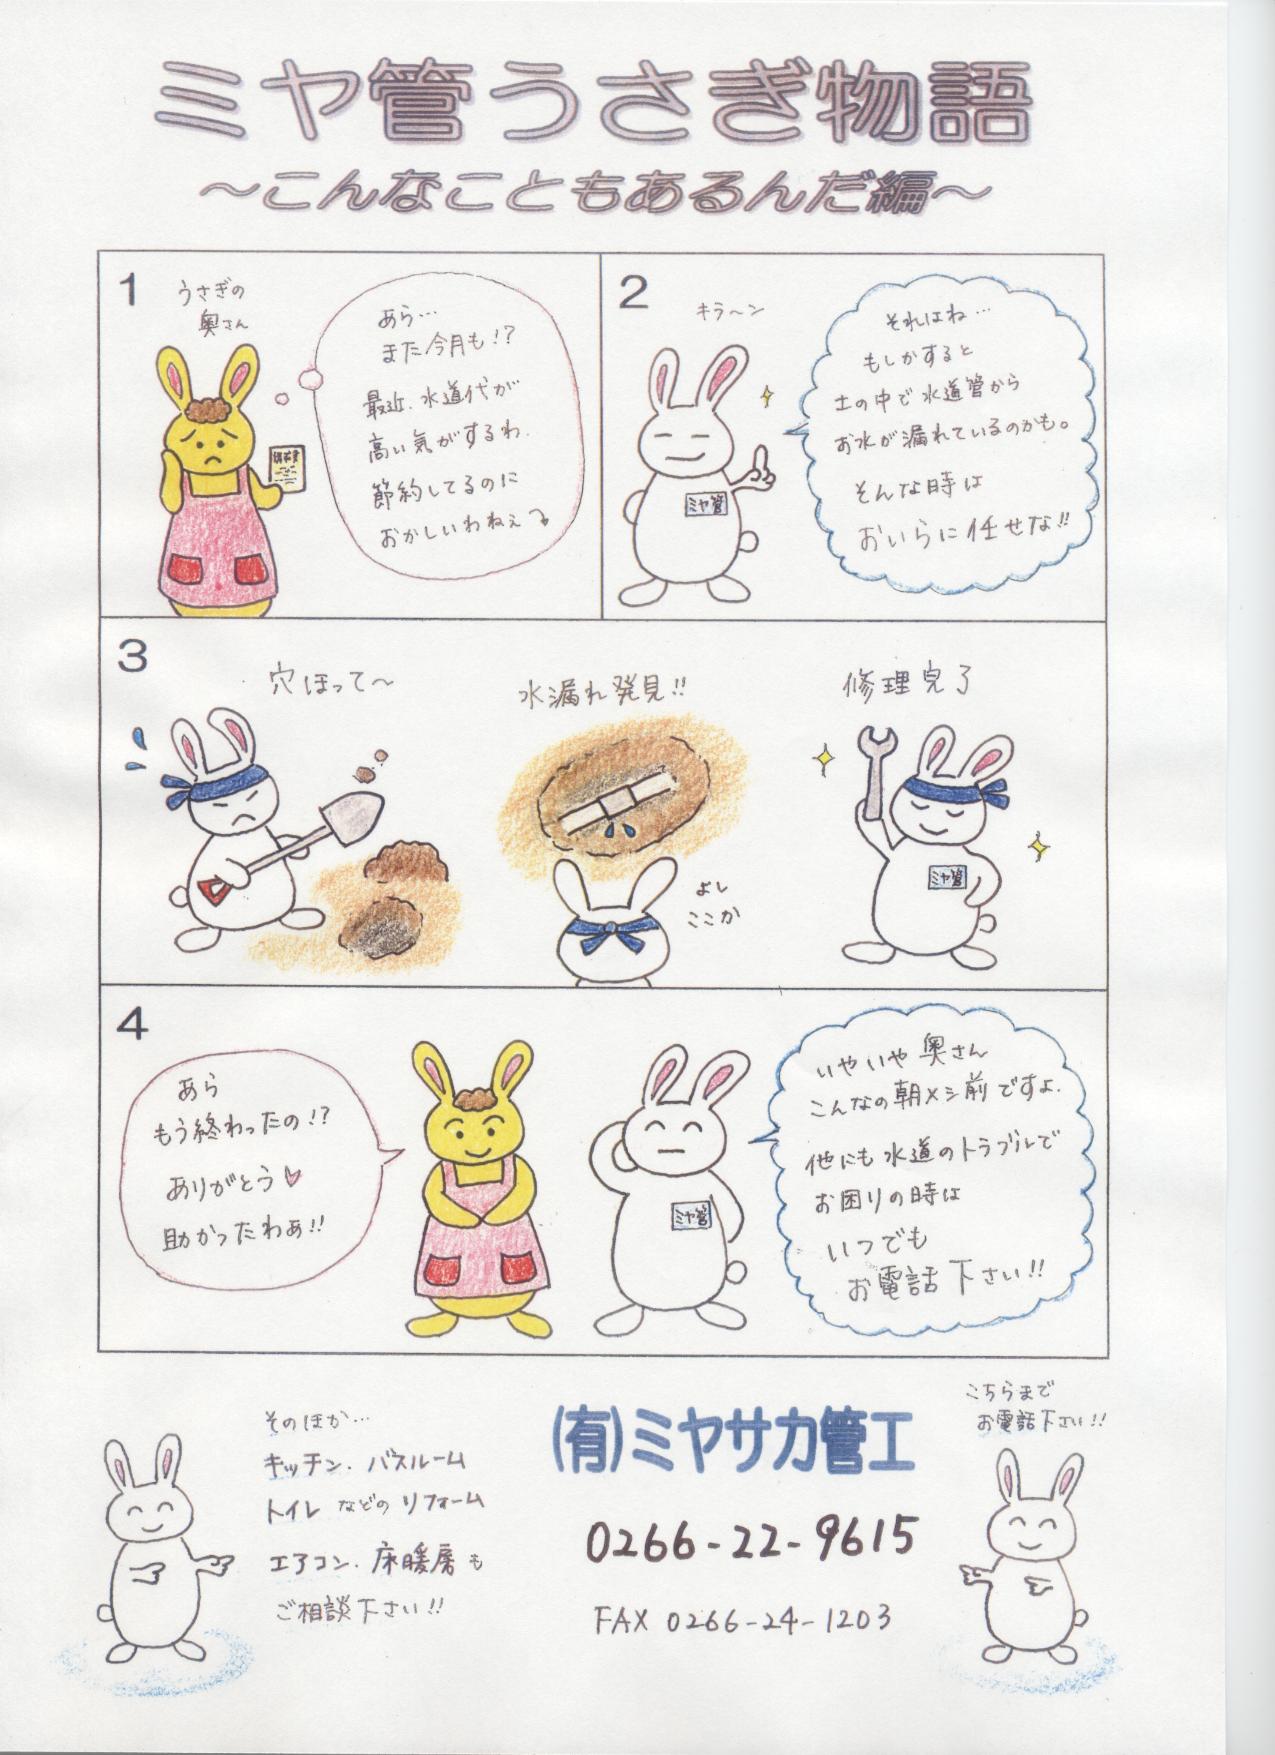 ミヤ管うさぎ物語
～こんなこともあるんだ編～
1
うさぎの
奥さん
あら…
また今月も!?
最近、水道代が
高い気がするわ、
節約してるのに
おかしいわねぇ
請求書
2
キラ～ン
それはね…
もしかすると
土の中で水道管から
お水が漏れているのかも。
そんな時は
おいらに任せな!!
ミヤ管
3
穴ほって～
水漏れ発見!!
よし
ここか
修理完了
ミヤ管
4
あら
もう終わったの!?
ありがとう♡
助かったわぁ!!
ミヤ管
いやいや奥さん
こんなの朝メシ前ですよ.
他にも水道のトラブルで
お困りの時は
いつでも
お電話下さい!!
そのほか…
キッチン、バスルーム
トイレなどのリフォーム
エアコン、床暖房も
ご相談下さい!!
(有)ミヤサカ管工
0266-22-9615
FAX 0266-24-1203
こちらまで
お電話下さい!!